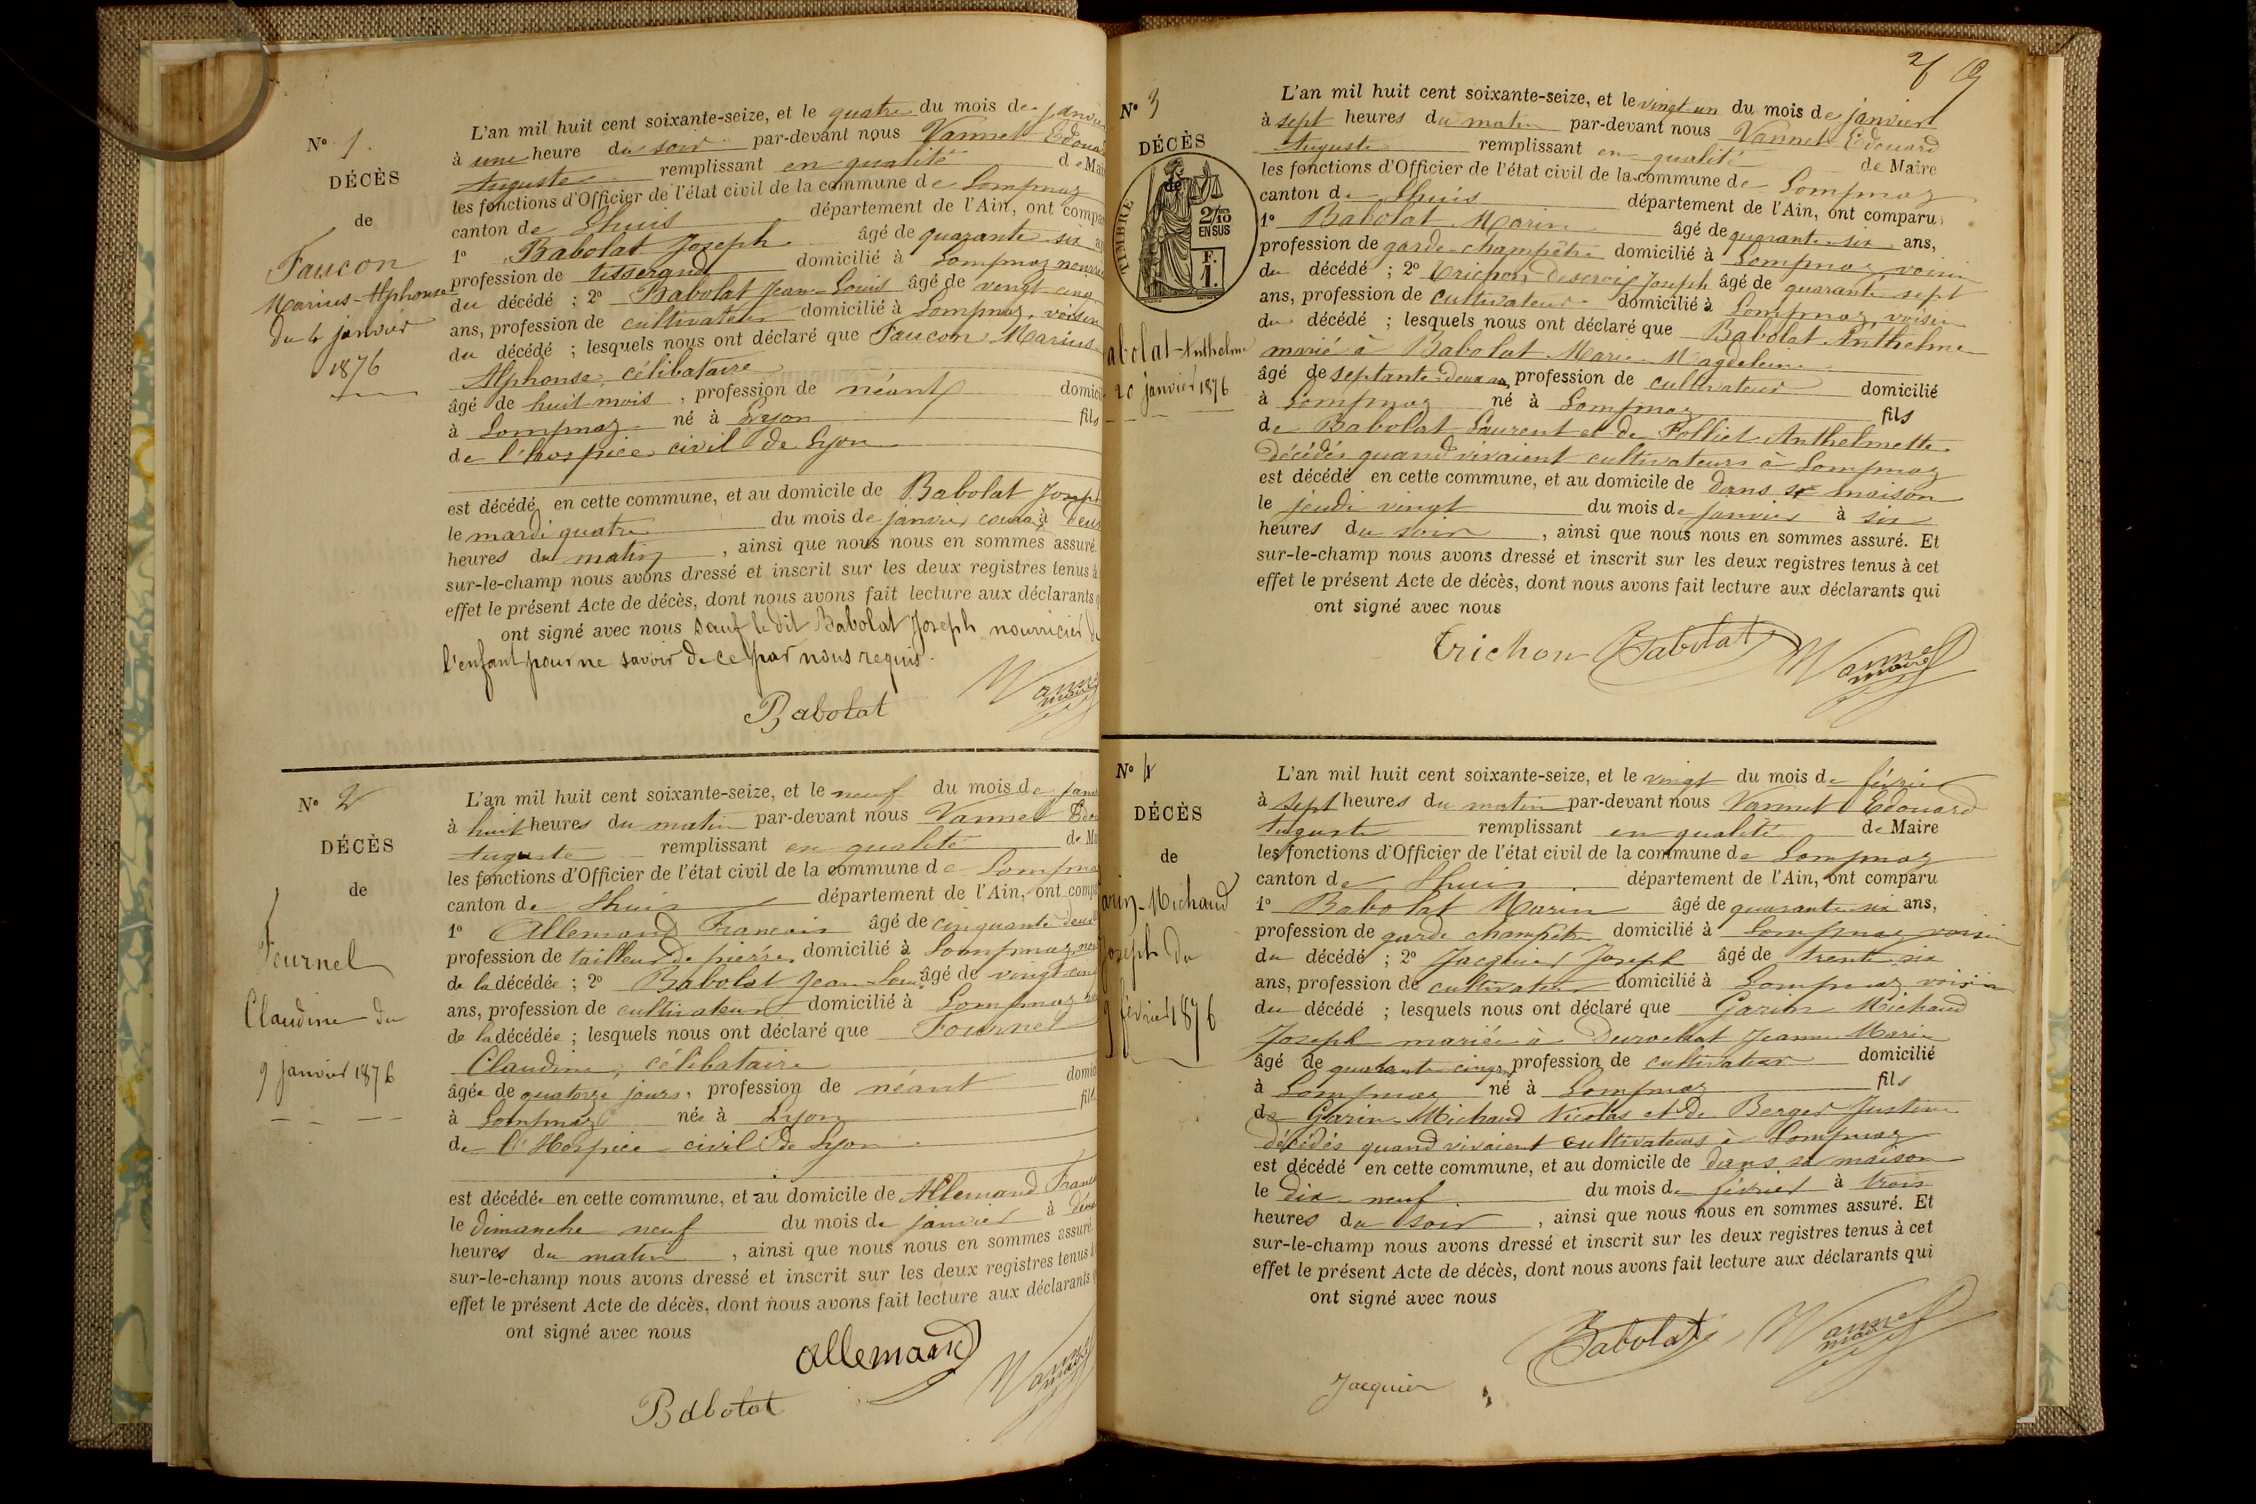 N° 1.
DÉCÈS
de
Faucon
Marius-Alphonse
du 4 janvier
1876
L'an mil huit cent soixante-seize, et le quatre du mois de janvier
à une heure du soir par-devant nous Vannel Edouard
Auguste remplissant en qualité de Mai
les fonctions d'Officier de l'état civil de la commune de Lompnaz
canton de Lhuis département de l'Ain, ont compar
1° Babolat Joseph âgé de quarante six an
profession de tisserand domicilié à Lompnaz nourric
du décédé ; 2° Babolat Jean-Louis âgé de vingt cinq
ans, profession de cultivateur domicilié à Lompnaz, voisin
du décédé ; lesquels nous ont déclaré que Faucon Marius
Alphonse, célibataire
âgé de huit mois, profession de néant domici
à Lompnaz né à Lyon fils
de l'hospice civil de Lyon
est décédé en cette commune, et au domicile de Babolat Joseph
le mardi quatre du mois de janvier courant à deux
heures du matin, ainsi que nous nous en sommes assuré.
sur-le-champ nous avons dressé et inscrit sur les deux registres tenus à
effet le présent Acte de décès, dont nous avons fait lecture aux déclarants q
ont signé avec nous sauf le dit Babolat Joseph nourricier de
l'enfant pour ne savoir de ce par nous requis.
Babolat Vannel maire
N° 2
DÉCÈS
de
Fournel
Claudine du
9 janvier 1876
L'an mil huit cent soixante-seize, et le neuf du mois de janv
à huit heures du matin par-devant nous Vannel Edou
Auguste remplissant en qualité de Ma
les fonctions d'Officier de l'état civil de la commune de Lompna
canton de Lhuis département de l'Ain, ont compa
1° Allemand François âgé de cinquante deux
profession de tailleur de pierre, domicilié à Lompnaz, nou
de la décédée ; 2° Babolat Jean Louis âgé de vingt cinq
ans, profession de cultivateur domicilié à Lompnaz
de la décédée ; lesquels nous ont déclaré que Fournel
Claudine, célibataire
âgée de quatorze jours, profession de néant domic
à Lompnaz née à Lyon fill
de l'Hospice civil de Lyon
est décédée en cette commune, et au domicile de Allemand Franc
le dimanche neuf du mois de janvier à deux
heures du matin, ainsi que nous nous en sommes assuré.
sur-le-champ nous avons dressé et inscrit sur les deux registres tenus à
effet le présent Acte de décès, dont nous avons fait lecture aux déclarants q
ont signé avec nous
Allemand
Babolat Vannel maire
N° 3
DÉCÈS
de
TIMBRE
2/10
EN SUS
F.
1.
abolat-Anthelme
20 janvier 1876
L'an mil huit cent soixante-seize, et le vingt-un du mois de janvier
à sept heures du matin par-devant nous Vannel Edouard
Auguste remplissant en qualité de Maire
les fonctions d'Officier de l'état civil de la commune de Lompnaz
canton de Lhuis département de l'Ain, ont comparu
1° Babolat Marin âgé de quarante-six ans,
profession de garde-champêtre domicilié à Lompnaz, voisin
du décédé ; 2° Trichon Joseph âgé de quarante sept
ans, profession de cultivateur domicilié à Lompnaz, voisin
du décédé ; lesquels nous ont déclaré que Babolat Anthelme
marié à Babolat Marie Magdeleine
âgé de septante-deux ans, profession de cultivateur domicilié
à Lompnaz né à Lompnaz fils
de Babolat Laurent et de Polliet Anthelmette
décédés quand vivaient cultivateurs à Lompnaz
est décédé en cette commune, et au domicile de dans sa maison
le jeudi vingt du mois de janvier à six
heures du soir, ainsi que nous nous en sommes assuré. Et
sur-le-champ nous avons dressé et inscrit sur les deux registres tenus à cet
effet le présent Acte de décès, dont nous avons fait lecture aux déclarants qui
ont signé avec nous
Trichon Babolat Vannel maire
N° 4
DÉCÈS
de
arin-Michaud
Joseph du
9 février 1876
L'an mil huit cent soixante-seize, et le vingt du mois de février
à sept heures du matin par-devant nous Vannel Edouard
Auguste remplissant en qualité de Maire
les fonctions d'Officier de l'état civil de la commune de Lompnaz
canton de Lhuis département de l'Ain, ont comparu
1° Babolat Marin âgé de quarante-six ans,
profession de garde champêtre domicilié à Lompnaz voisin
du décédé ; 2° Jacquier Joseph âgé de trente six
ans, profession de cultivateur domicilié à Lompnaz voisin
du décédé ; lesquels nous ont déclaré que Garin Michaud
Joseph marié à Durochat Jeanne Marie
âgé de quarante cinq, profession de cultivateur domicilié
à Lompnaz né à Lompnaz fils
de Garin Michaud Nicolas et de Berger Justine
décédés quand vivaient cultivateurs à Lompnaz
est décédé en cette commune, et au domicile de dans sa maison
le dix neuf du mois de février à trois
heures du soir, ainsi que nous nous en sommes assuré. Et
sur-le-champ nous avons dressé et inscrit sur les deux registres tenus à cet
effet le présent Acte de décès, dont nous avons fait lecture aux déclarants qui
ont signé avec nous
Babolat Vannel maire
Jacquier